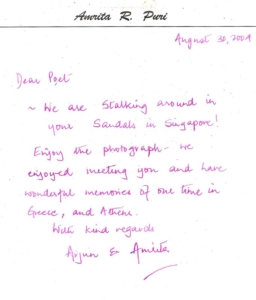 Amrita R. Puri
August 30, 2009
Dear Poet
~ We are Stalking around in
your Sandals in Singapore!
Enjoy the photograph - we
enjoyed meeting you and have
wonderful memories of our time in
Greece, and Athens.
With kind regards
Arjun & Amrita